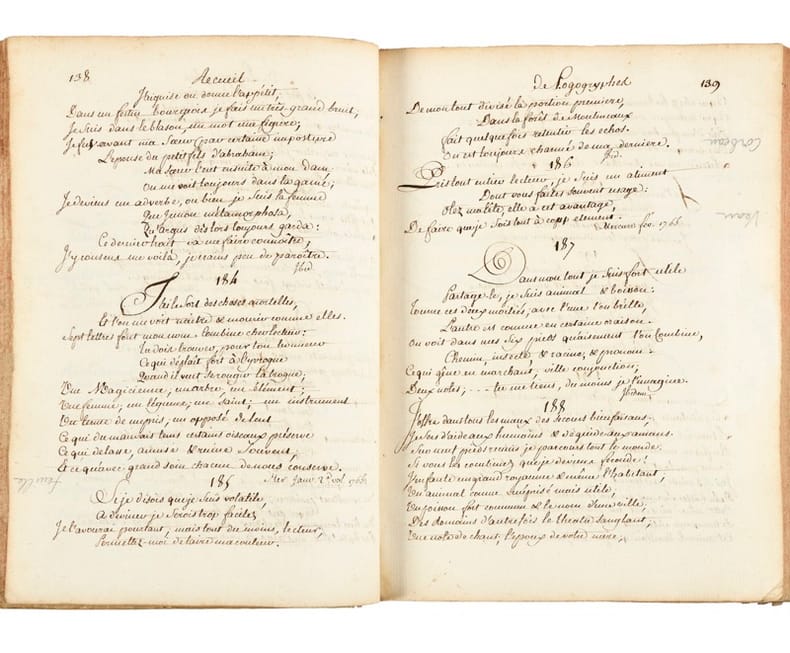 138 Recueil
J'aiguise ou donne l'appétit,
Dans un festin Bourgeois je fais un très-grand bruit,
Je suis dans le blason, un mot une figure;
Je fus avant ma Sœur, par certaine imposture
L'epouse du petit fils d'abraham;
Ma sœur l'est ensuite à mon dam
On me voit toujours dans la game;
Je deviens un adverbe, ou bien je suis la femme
Que Junon métamorphosa,
Qu'argus dès lors toujours garda:
Ce dernier trait va me faire connoitre,
J'y consens me voilà, je crains peu de paroître.
Ibid.
184
J'ai le sort des choses mortelles,
Et l'on me voit naitre & mourir comme elles.
Sept lettres font mon nom. Combine cher lecteur:
Tu dois trouver, pour ton honneur
Ce qui déplait fort à l'yvrogne
Quand il veut se rougir la trogne;
Une Magicienne, un arbre, un élément;
Une femme, un légume, un Saint; un instrument
Un terme de mépris, un opposé de lent
Ce qui du mauvais tems certains oiseaux préserve
Ce qui delasse, amuse & ruine Souvent,
Et ce qu'avec grand soin chacun de nous conserve.
feuille
Mer Janv. 2d. vol. 1766
185
Si je disois que je suis volatile,
A deviner je serois trop facile;
Je l'avourai pourtant; mais tout du moins, lecteur,
Permettez-moi de taire ma couleur.
De Logogryphes 139
De mon tout divisé la portion premiere,
Dans la forêt de Montmeraux
Fait quelquefois retentir les echos.
On est toujours charmé de ma derniere.
Ibid.
Corbeau
186
Pris tout entier lecteur, je suis un aliment
Dont vous faites souvent usage:
Otez ma tête, elle a cet avantage,
De faire que je sois tout à coup element.
Mercure fev. 1766.
Veau
187
Dans mon tout je suis fort utile
Partage-le, je suis animal & boisson:
Tourne ces deux moitiés, avec l'une l'on brille,
L'autre est comme en certaine oraison.
On voit dans mes six pieds quaisement l'on Combine,
Chemin, insecte & racine, & pronom.
Ce qui gêne en marchant, ville conjonction;
Deux notes; . . . tu me tiens, du moins je l'imagine.
Ibidem
188
J'offre dans tous les maux des secours bienfaisans,
Je sers d'aide aux humains & de guide aux amans.
Sur sept pieds croisés je parcours tout le monde.
Si vous les combinez que je deviens féconde!
J'enfante un grand royaume & même l'habitant,
Un animal connu méprisé mais utile,
Un poisson fort commun & le nom d'une ville,
Des Romains d'autrefois le theatre sanglant,
Une note de chant, l'epoux de votre mere,